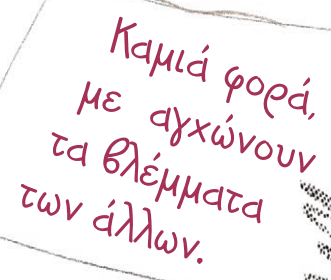 Καμιά φορά,
με αγχώνουν
τα βλέμματα
των άλλων.